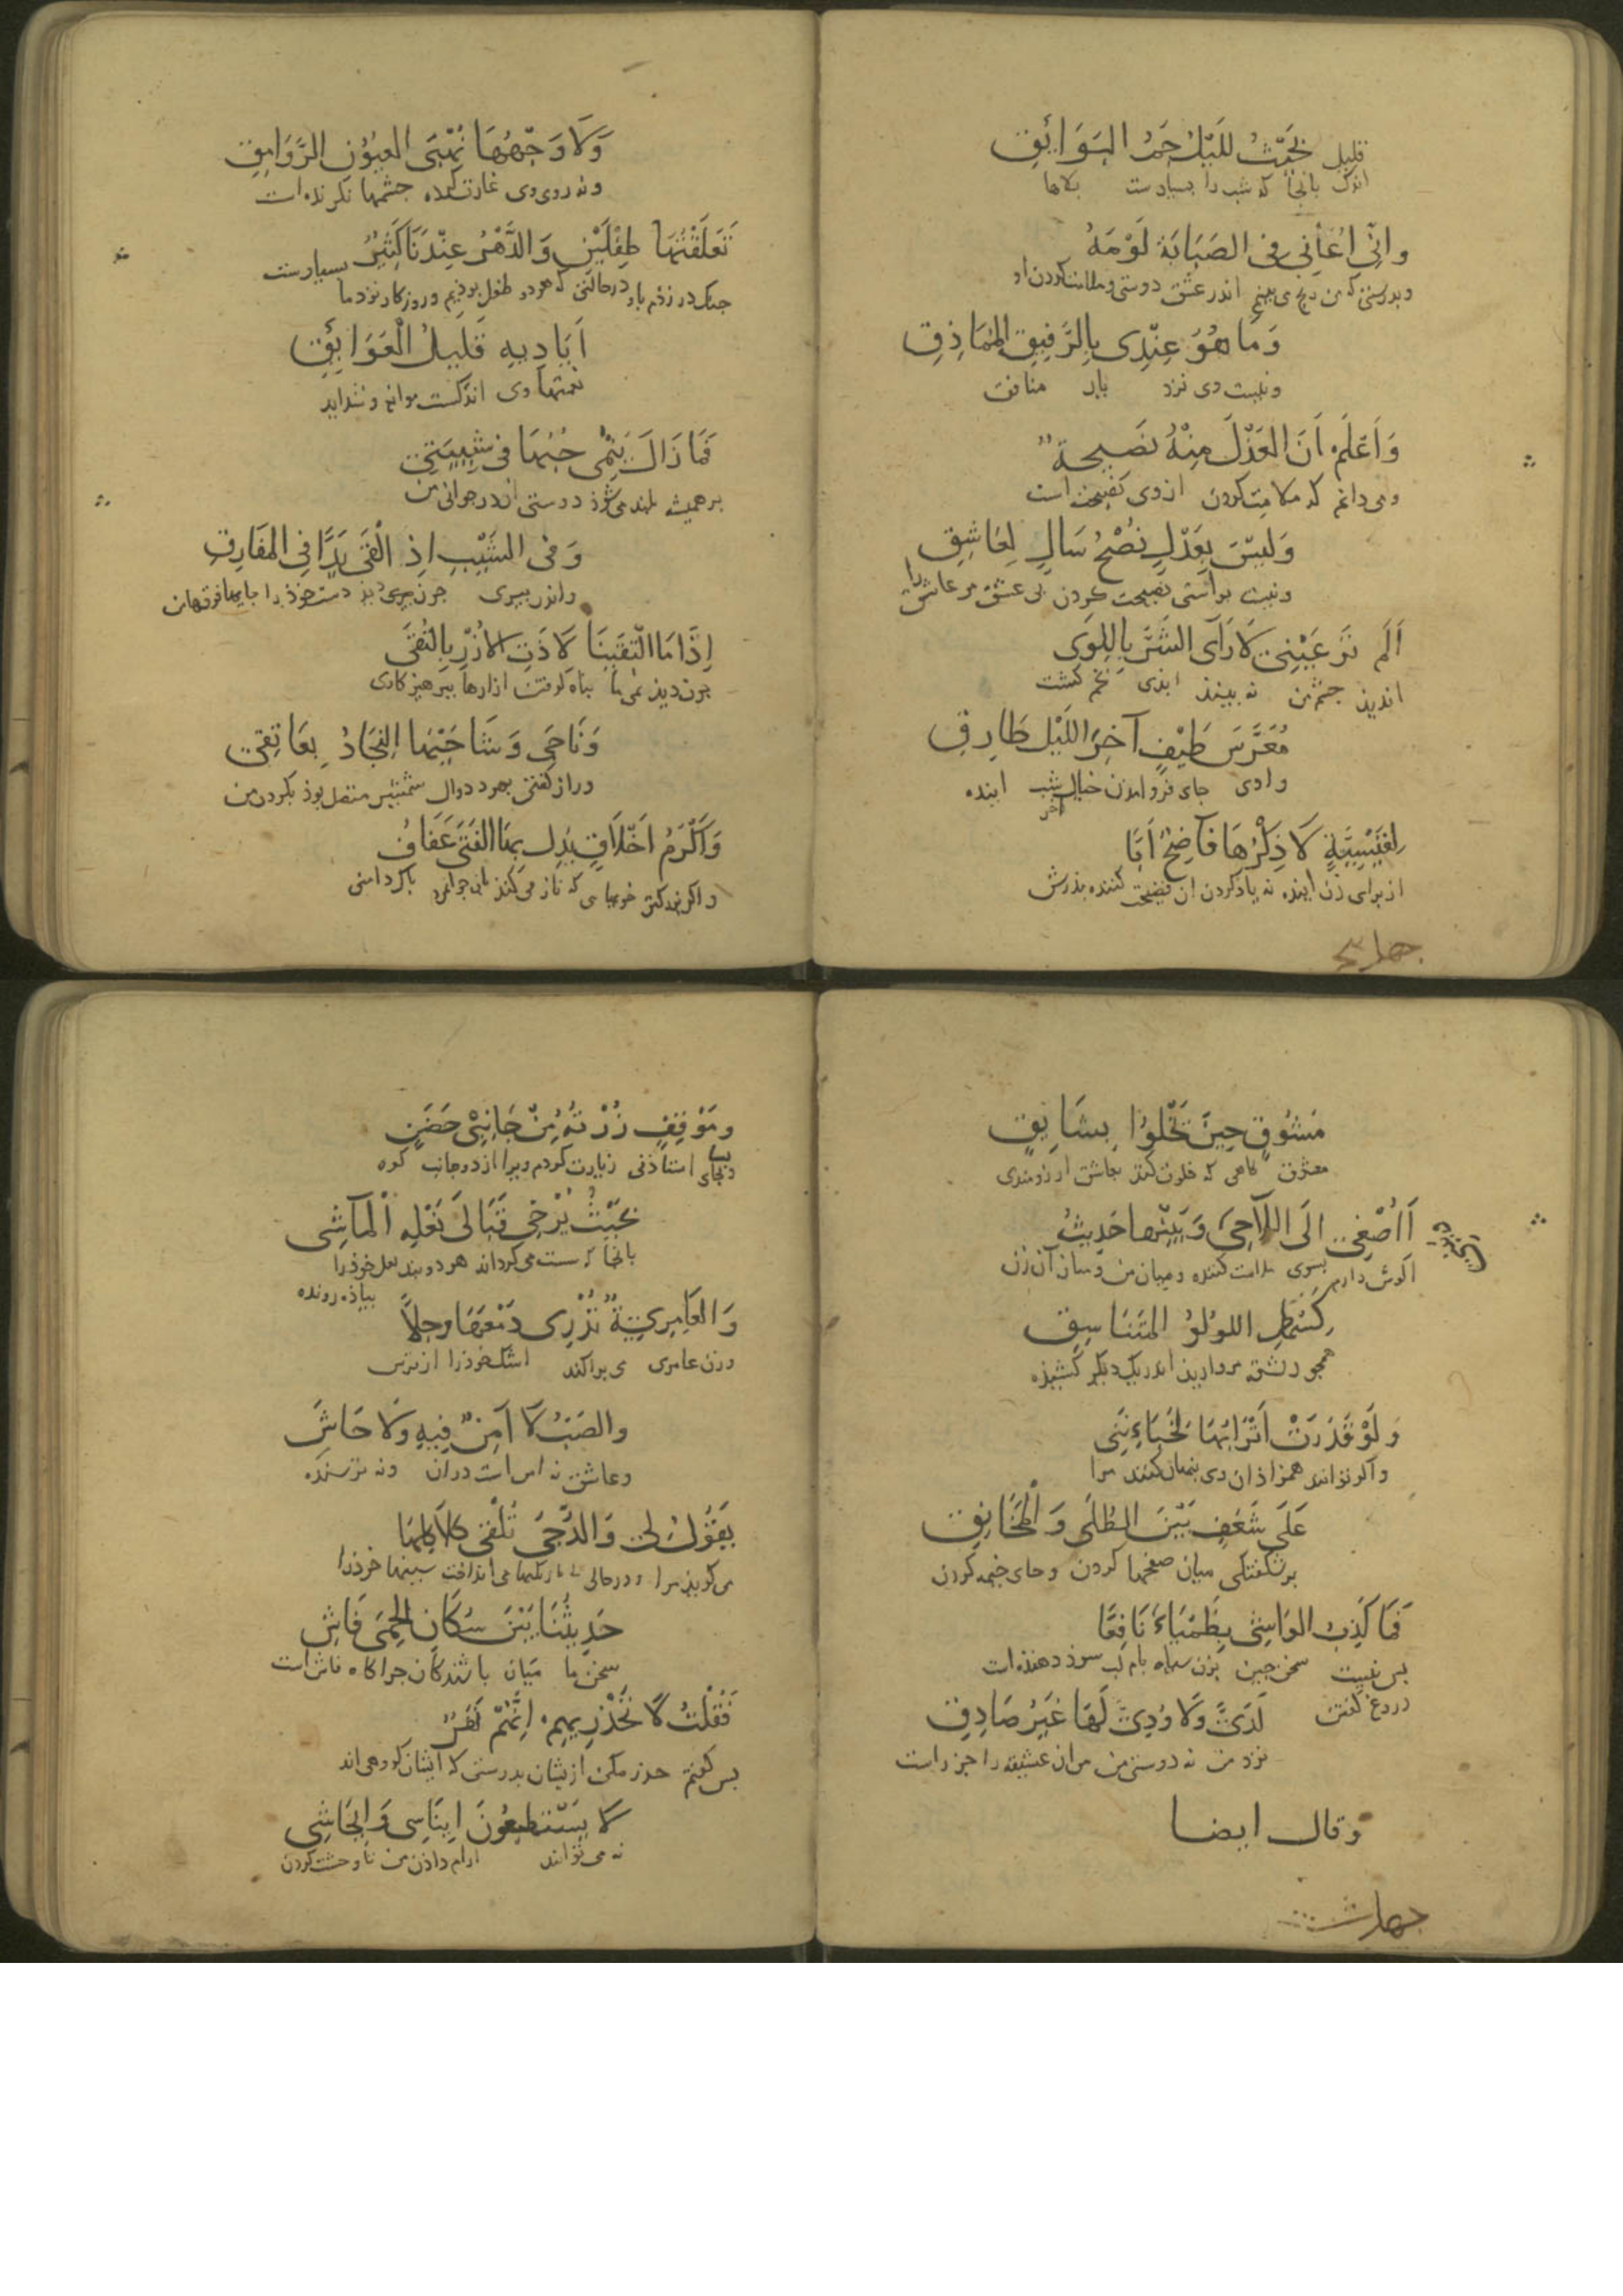 قليل بحيث لليل جم البوائق
اندک بانجا که شب را بسیارست بلاها
واني اعاني في الصبابة لومه
وبدرستی که من رنج می بینم اندر عشق دوستی وملامت کردن او
وَمَا هُوَ عِنْدِي بِالرَّفِيقِ المُمَاذِقِ
ونیست وی نزد یار منافق
وَاَعْلَمُ اَنَّ العَذْلَ مِنْهُ نَصِيحَةٌ
ومی دانم که ملامت کردن ازوی نصیحت است
وَلَيسَ بِعَذْلٍ نُصْحُ سَالٍ لِعَاشِقِ
ونیست براستی نصیحت کردن بی عشق مر عاشق را
اَلَم تَرَ عَيْنِي لَا رَاَى الشَّرَّ بِاللِوَى
اندیذ چشم من نه بیند ابدی
مُعَرَّسَ طَيْفٍ آخِرَ اللَيْلِ طَارِقِ
وادی جای فرو امدن خیال آخر شب اینده
لِغَيْسِيَّةٍ لَا ذِكْرُهَا فَاضِحٌ اَبًا
از برای زن اینده نه یاذ کردن ان فضیحت کننده بذرش
وَلَا وَجْهُهَا نُهْبَى العُيُوْنِ الرَّوَامِقِ
ونه روی وی غارت کده چشمها نکرنده است
تَعَلَّقْتُهَا طِفْلَيْنِ وَالدَّهْرُ عِنْدَنَا كَثِيْرُ
چنک در زذم باو درحالتی که هر دو طفل بوذیم وروزکار نزد ما بسیارست
اَيَادِيهِ قَلِيلُ الْعَوَائِقِ
نعمتهاء وی اندکست موانع وشداید
فَمَا زَالَ يَنْمِى حُبُّهَا فِي شَبِيبَتِي
بر همیشه بلند می شوذ دوستی اندر جوانی من
وَفِي الشَّيْبِ اِذْ اَلْقَى يَدًا فِي المَفَارِقِ
واندر بیری چون بیری دست خوذ را جایها فرق من
اِذَا مَا الْتَقَيْنَا لَاذَتِ الاُزْرُ بِالتُّقَى
چون دیذیم ما بناه کرفتند ازارها ببرهیزکاری
وَنَاجَى وَشَاحَيْهَا النِّجَادُ بِعَاتِقِي
وراز کفتی بهر دو دوال شمشیر متصل بوذ بکردن من
وَاَكْرَمُ اَخْلَاقٍ يُدِلُّ بِهَا الفَتَى عَفَافُ
و بزرکتر خویها یی که ناز می کنذ بان جوانمرد باک دامنی
چهار
مَشُوْقٍ حِيْنَ يَخْلُوْا بِشَائِقِ
معشوق کاهی که خلوت کند بعاشق ارزومندی
اَاُصْغِي اِلَى اللَّاحِي وَبَيْنِي وَبَيْنَهَا حَدِيْثُ
اکوش دارم بسوی ملامت کننده ومیان من ومیان آن زن
كَسِمْطِ اللولُؤِ المُتَنَاسِقِ
همچو رشتۀ مروارید اندر یک دیکر کشیذه
وَلَوْ قَدَرَتْ اَتْرَابُهَا لَخَبَاءْنَنِي
واکر توانند همزاذان وی بنهان کنند مرا
عَلَى شَغَفٍ بَيْنَ الطُّلَى وَالْمَخَانِقِ
بر شکفتکی میان صفحهاء کردن وجای کردن
فَمَا كَذِبُ الوَاشِي بِظَمْيَاءَ نَافِعًا
بس نیست سخن چین بزن سیاه بام لب سوذ دهنده است
دروغ کفتن
لَدَيَّ وَلَا وُدِّي لَهَا غَيْرُ صَادِقِ
نزد من نه دوستی من مر آن عشیقه را جز راست
وقال ايضا
وَمَوْقِفٍ زُرْتُهُ مِنْ جَانِبَيْ حَضَنٍ
وبجای استاذنی زیارت کردم ویرا از دو جانب کوه
بِحَيْثُ يُرْخِي قَبَالَي نَعْلِهِ الْمَاشِي
بانجا که سست می کرداند هر دو بند نعل خوذ را
بیاذه رونده
وَالعَامِرِيَّةُ تُذْرِى دَمْعَهَا وَجِلًا
وزن عامری می براکند اشک خوذ را از ترس
والصَبُّ لَا آمِنٌ فِيهِ وَلَا خَاشَ
وعاشق نه امن است دران ونه ترسنده
يَقُوْلُ لِي وَالدُّجَى تُلْقِي كَلَاكِلَهَا
می کویذ مرا ودرحالی که تاریکیها می انداخت سینها خوذ را
حَدِيثُنَا بَيْنَ سُكَّانِ الحِمَى فَاشِ
سخن ما میان باشندکان چراکاه فاش است
فَقُلْتُ لَا تَحْذَرِيهِمْ اِنَّهُمْ نَفَرٌ
بس کفتم حذر مکن ازیشان بدرستی که ایشان کروهی اند
لَا يَسْتَطِيعُوْنَ اِينَاسِي وَاِيحَاشِي
نه می توانند ارام داذن من تا وحشت کردن
چهار